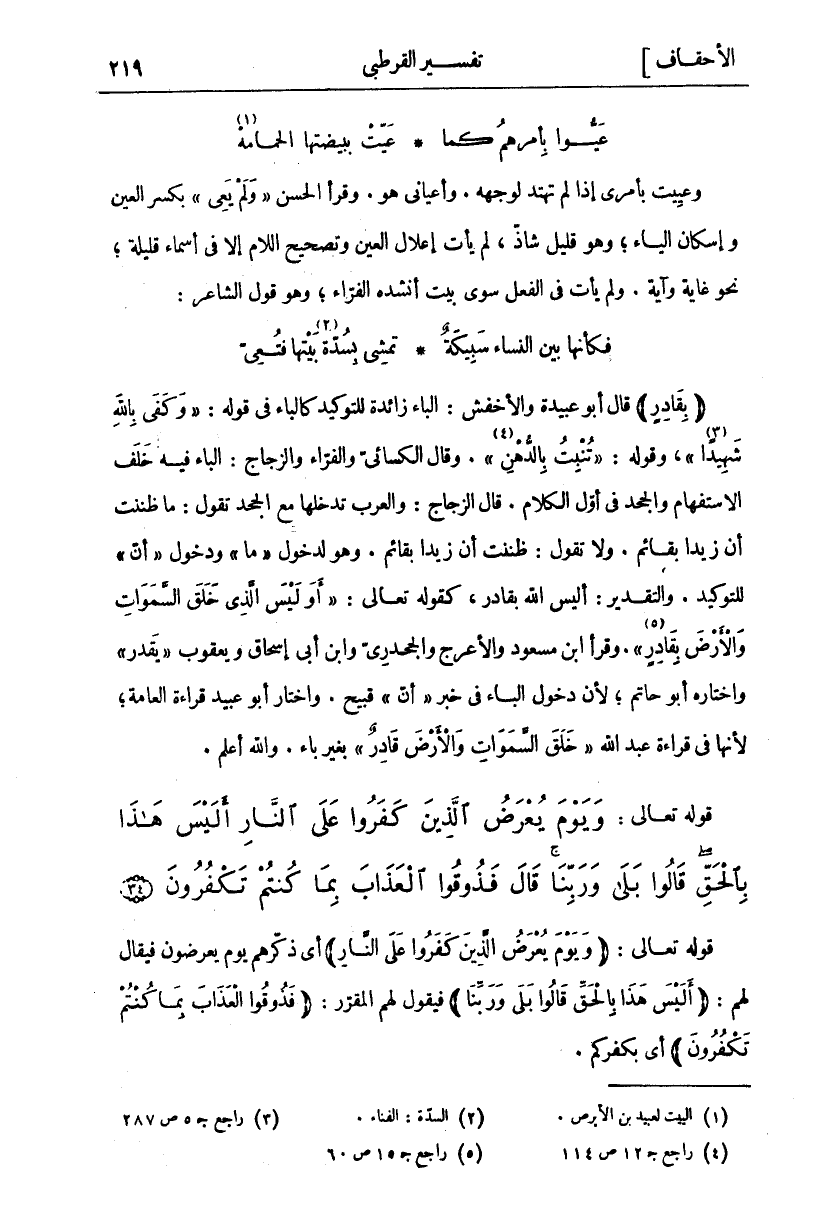 الأحقاف] تفسير القرطبى ٢١٩
عَيُّوا بأمرهمُ كما * عَيّتْ ببيضتها الحمامهْ (١)
وعييت بأمرى إذا لم تهتد لوجهه . وأعيانى هو . وقرأ الحسن « وَلَمْ يَعِى » بكسر العين
وإسكان الياء ؛ وهو قليل شاذّ ، لم يأت إعلال العين وتصحيح اللام إلا فى أسماء قليلة ؛
نحو غاية وآية . ولم يأت فى الفعل سوى بيت أنشده الفرّاء ؛ وهو قول الشاعر :
فكأنها بين النساء سَبِيكَةٌ * تمشِى بِسُدّة (٢) بَيْتها فَتُعِىّ
﴿ بِقَادِرٍ ﴾ قال أبو عبيدة والأخفش : الباء زائدة للتوكيد كالباء فى قوله : « وَكَفَى بِاللهِ
شَهِيدًا (٣) » ، وقوله : « تُنْبِتُ بِالدُّهْنِ (٤) » . وقال الكسائىّ والفرّاء والزجاج : الباء فيه خَلَف
الاستفهام والجحد فى أوّل الكلام . قال الزجاج : والعرب تدخلها مع الجحد تقول : ما ظننت
أن زيدا بقائم . ولا تقول : ظننت أن زيدا بقائم . وهو لدخول « ما » ودخول « أنّ »
للتوكيد . والتقدير : أليس الله بقادر ، كقوله تعالى : « أَوَلَيْسَ الَّذِى خَلَقَ السَّمَوَاتِ
وَالْأَرْضَ بِقَادِرٍ (٥) » . وقرأ ابن مسعود والأعرج والجحدرىّ وابن أبى إسحاق ويعقوب « يقدر »
واختاره أبو حاتم ؛ لأن دخول الباء فى خبر « أنّ » قبيح . واختار أبو عبيد قراءة العامة ؛
لأنها فى قراءة عبد الله « خَلَقَ السَّمَوَاتِ وَالْأَرْضَ قَادِرٌ » بغير باء . والله أعلم .
قوله تعالى : وَيَوْمَ يُعْرَضُ ٱلَّذِينَ كَفَرُوا عَلَى ٱلنَّارِ أَلَيْسَ هَـٰذَا
بِٱلْحَقِّ ۖ قَالُوا بَلَىٰ وَرَبِّنَا ۚ قَالَ فَذُوقُوا ٱلْعَذَابَ بِمَا كُنتُمْ تَكْفُرُونَ ٣٤
قوله تعالى : ﴿ وَيَوْمَ يُعْرَضُ الَّذِينَ كَفَرُوا عَلَى النَّارِ ﴾ أى ذكّرهم يوم يعرضون فيقال
لهم : ﴿ أَلَيْسَ هَذَا بِالْحَقِّ قَالُوا بَلَى وَرَبِّنَا ﴾ فيقول لهم المقرّر : ﴿ فَذُوقُوا الْعَذَابَ بِمَا كُنْتُمْ
تَكْفُرُونَ ﴾ أى بكفركم .
(١) البيت لعبيد بن الأبرص . (٢) السدّة : الفناء . (٣) راجع جـ ٥ ص ٢٨٧
(٤) راجع جـ ١٢ ص ١١٤ (٥) راجع جـ ١٥ ص ٦٠